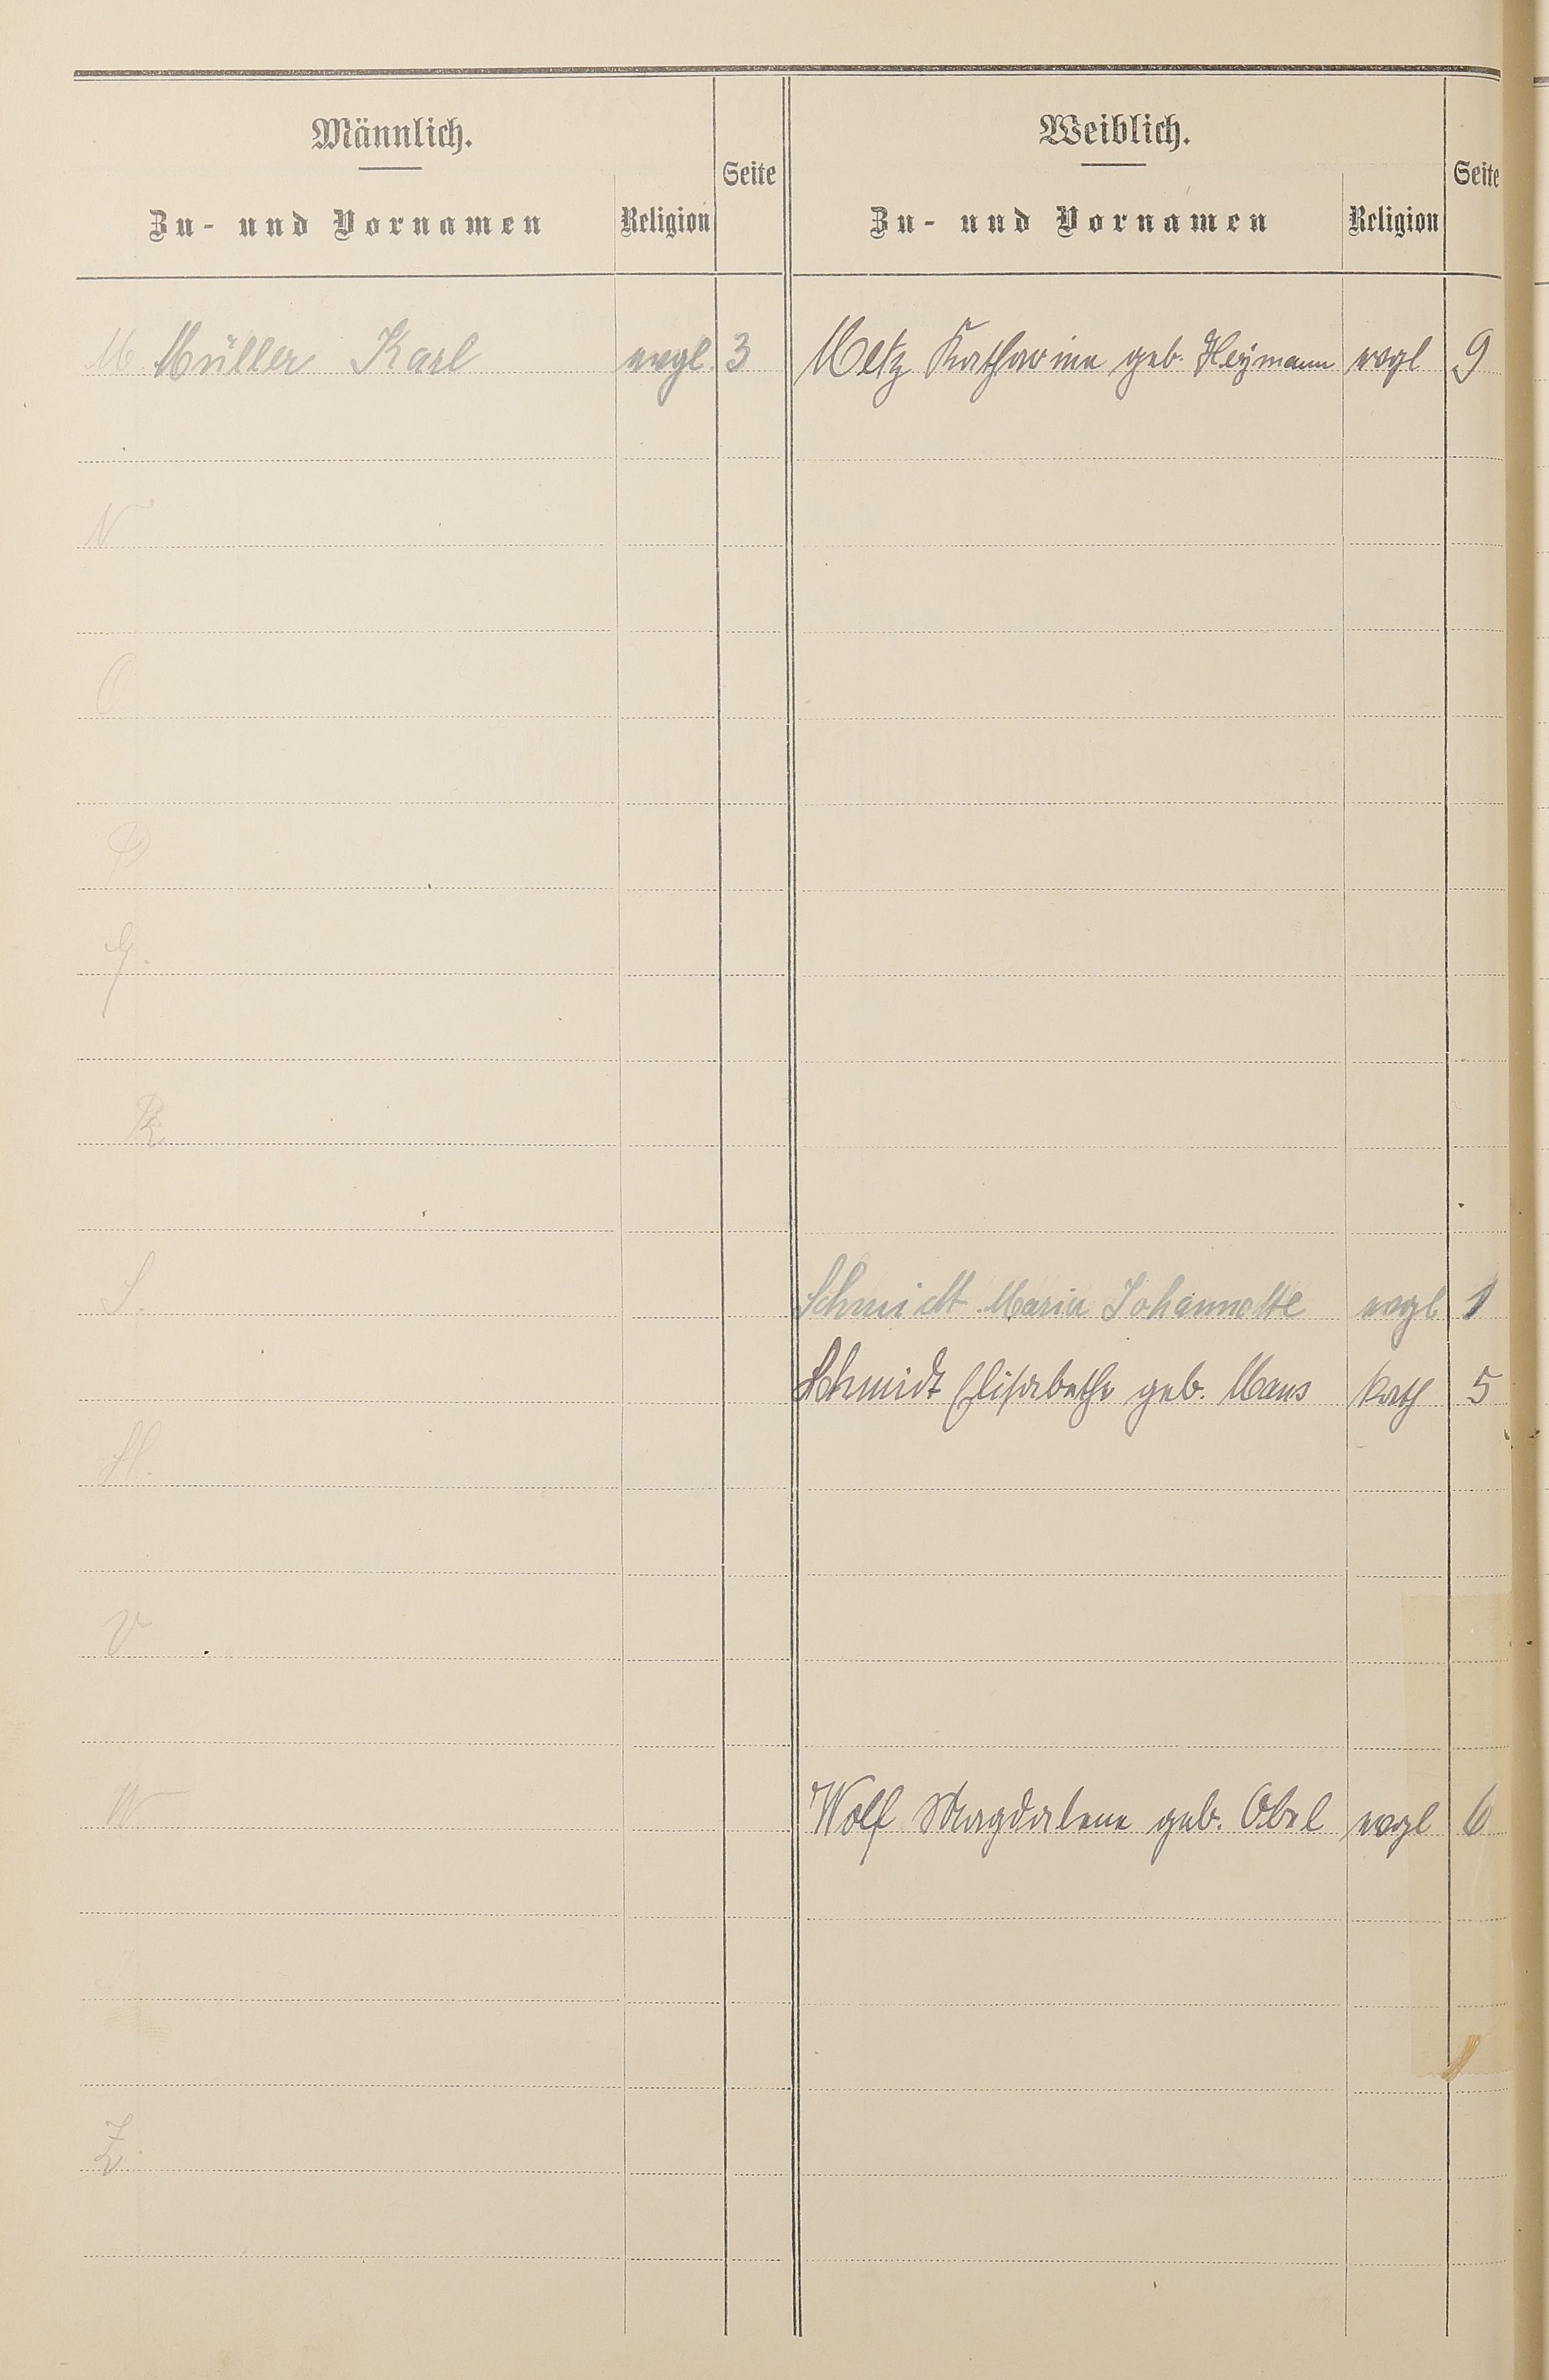 Männlich.
Zu- und Vornamen Religion Seite
Weiblich.
Zu- und Vornamen Religion Seite
M Müller Karl evgl. 3 Metz Katharine geb. Heymann evgl 9
N
O
P
Q.
R
S. Schmidt Maria Johannette evgl 1
Schmidt Elisabethe geb. Maus kath 5
V
W Wolf Magdalene geb. Obel evgl 6
Z.